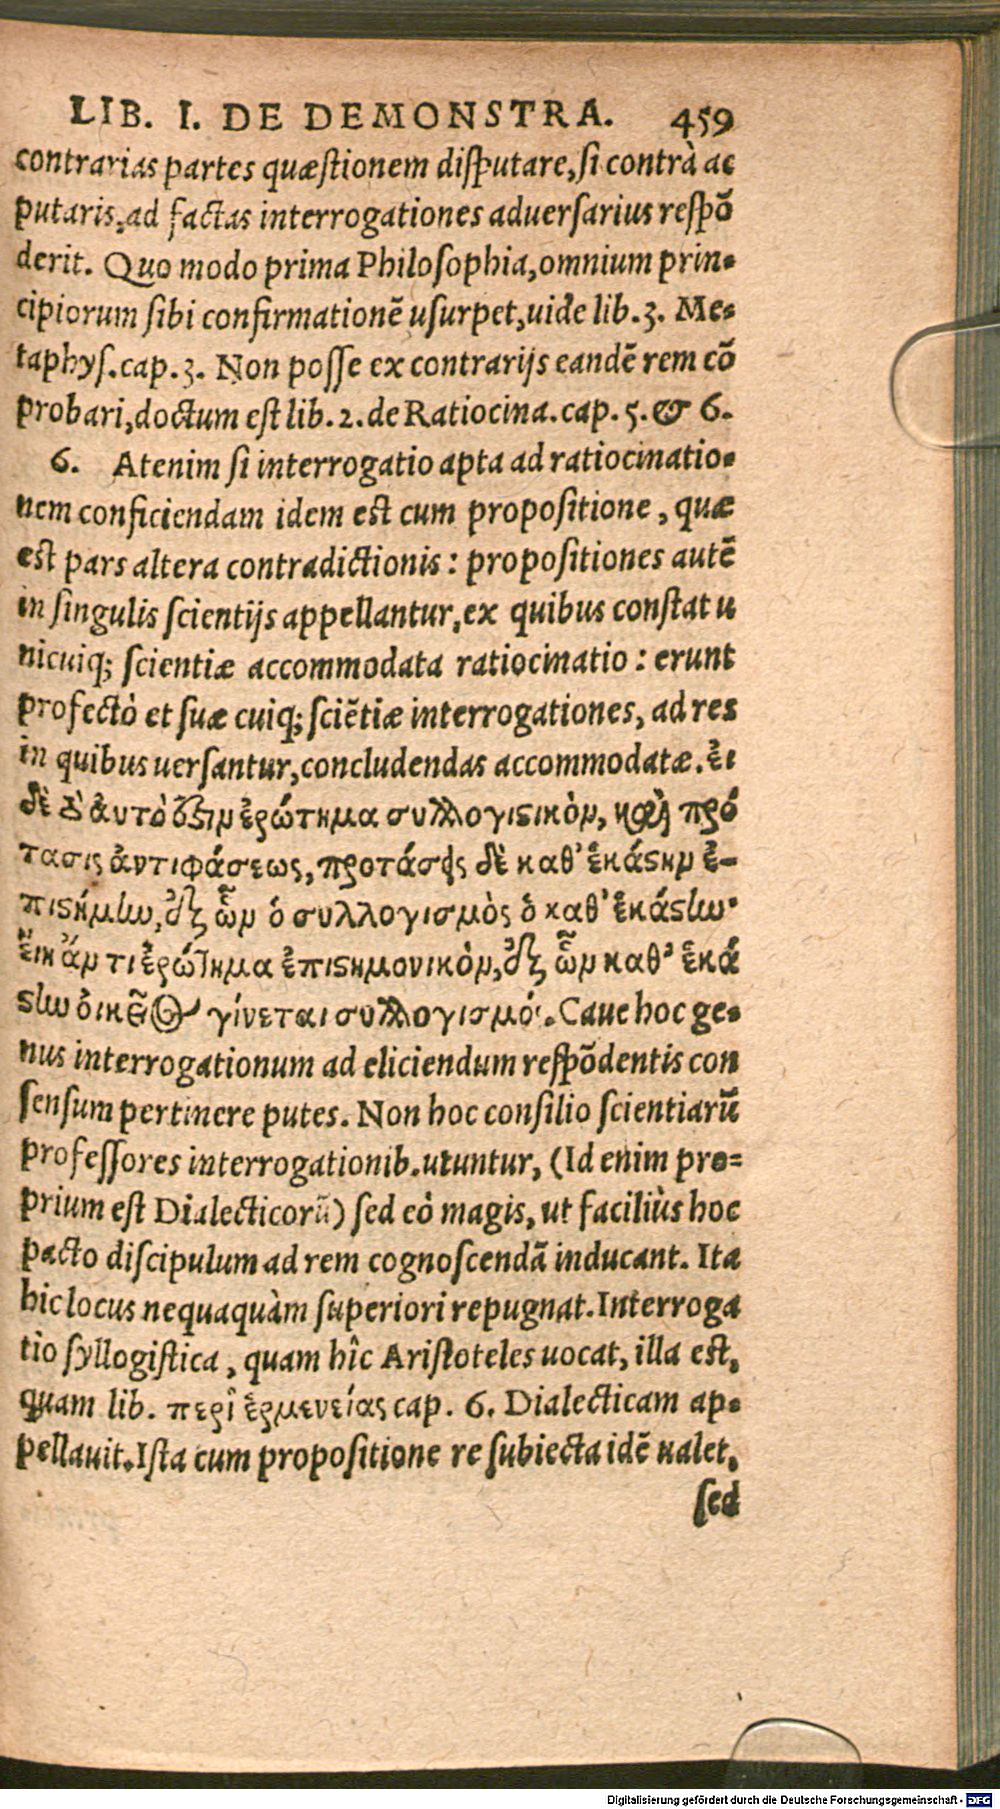 LIB. I. DE DEMONSTRA. 459
contrarias partes quæstionem disputare, si contrà ac
putaris, ad factas interrogationes aduersarius respõ
derit. Quo modo prima Philosophia, omnium prin-
cipiorum sibi confirmationẽ usurpet, uide lib. 3. Me-
taphys. cap. 3. Non posse ex contrarijs eandẽ rem cõ
probari, doctum est lib. 2. de Ratiocina. cap. 5. & 6.
6. Atenim si interrogatio apta ad ratiocinatio-
nem conficiendam idem est cum propositione, quæ
est pars altera contradictionis: propositiones autẽ
in singulis scientijs appellantur, ex quibus constat u
nicuiq; scientiæ accommodata ratiocinatio: erunt
profectò et suæ cuiq; sciẽtiæ interrogationes, ad res
in quibus uersantur, concludendas accommodatæ. ἐι
δὲ τὸ ἀυτὸ ὅζιν ἐρώτημα συλλογιϛικὸν, καὶ πρό
τασις ἀντιφάσεως, προτάσεις δὲ καθ' ἑκάϛην ἐ-
πιϛήμην, ἐξ ὧν ὁ συλλογισμὸς ὁ καθ' ἑκάϛην·
ἔικ ἄν τι ἐρώτημα ἐπιϛημονικὸν, ἐξ ὧν καθ' ἑκά
ϛην ὁικεῖος γίνεται συλλογισμός. Caue hoc ge-
nus interrogationum ad eliciendum respõdentis con
sensum pertinere putes. Non hoc consilio scientiarũ
professores interrogationib. utuntur, (Id enim pro-
prium est Dialecticorũ) sed eò magis, ut faciliùs hoc
pacto discipulum ad rem cognoscendã inducant. Ita
hic locus nequaquàm superiori repugnat. Interroga
tio syllogistica, quam hîc Aristoteles uocat, illa est,
quam lib. περὶ ἑρμενείας cap. 6. Dialecticam ap-
pellauit. Ista cum propositione re subiecta idẽ ualet,
sed
Digitalisierung gefördert durch die Deutsche Forschungsgemeinschaft - DFG